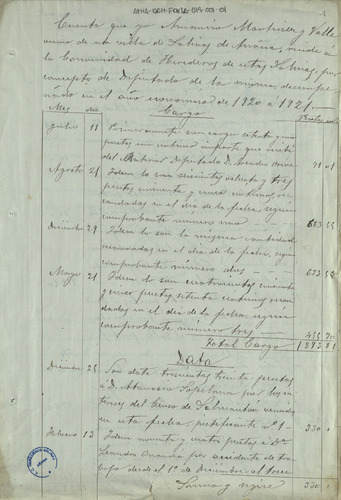 ATHA-DAH-FCASA-019-001-01
Cuenta que yo Antonino Martinez y Valle
cino de esta villa de Salinas de Añana, rinde á
la Comunidad de Herederos de estas Salinas, por
concepto de Diputado de la misma, desempe
ñado en el año economico de 1920 á 1921.
Mes dia Cargo Pesetas cts
Julio 11 Primeramente son cargo setenta y una
pesetas un centimo importe que recibi
del Anterior Diputado D. 71 01
Agosto 21 Idem lo son seiscientas ochenta y tres
pesetas, cincuenta y cinco centimos, re
caudadas en el dia de la fecha, segun
comprobante numero uno 683 55
Diciembre 29 Idem lo son la misma cantidad
recaudada en el dia de la fecha, segun
comprobante número dos 683 55
Mayo 21 Idem lo son cuatrocientas cincuenta
y cinco pesetas, setenta centimos, recau
dadas en el dia de la fecha, segun
comprobante numero tres 455 70
Total Cargo 1893 81
Data
Diciembre 25 Son data trescientas treinta pesetas
á D. por los in
tereses del Censo de vencido
en esta fecha, justificante nº 1 330 "
Febrero 13 Idem noventa y cuatro pesetas á Dn
Leandro por accidente de tra
bajo desde el 1º de Diciembre al trece
Suma y sigue 330 "